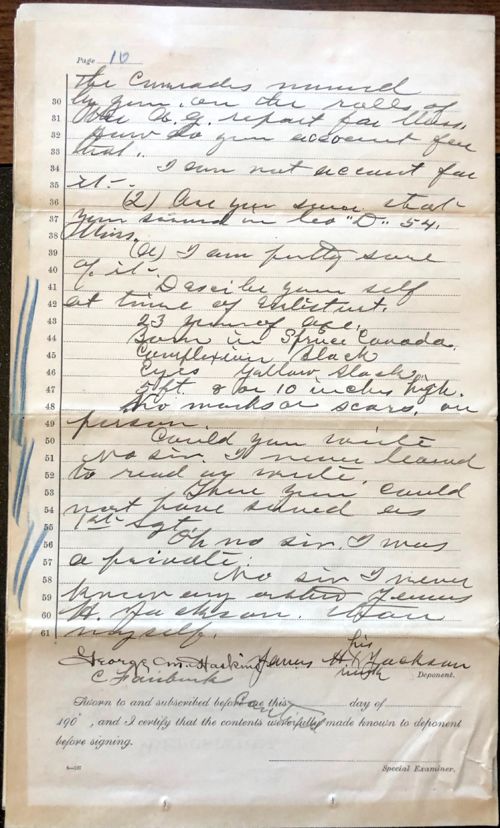 Page 10
the Comrades named
30 by you, on the rolls of
31 the A.G. report for Mass.
32 How do you account for
33 that.
34 I can not account for
35 it.
36 (2) Are you sure that
37 you served in Co "D" 54,
38 Mass.
39 (A) I am pretty sure
40 of it.
41 Describe your self
42 at time of Enlistmt.
43 23 years of age.
44 Born in Canada.
45 Complexion Black
46 Eyes Yellow Black
47 5 ft. 8 or 10 inches high.
48 No marks or scars, on
49 person.
50 Could you write
51 No sir. I never learned
52 to read or write.
53 Then you could
54 not have served as
55 1st Sgt.
56 Oh no sir, I was
57 a private.
58 No sir I never
59 knew any other James
60 H. Jackson. than
61 myself.
George M. Haskins James H his X mark Jackson
C Fairbank Deponent.
Sworn to and subscribed before me this day of
190 , and I certify that the contents were fully made known to deponent
before signing.
Special Examiner.